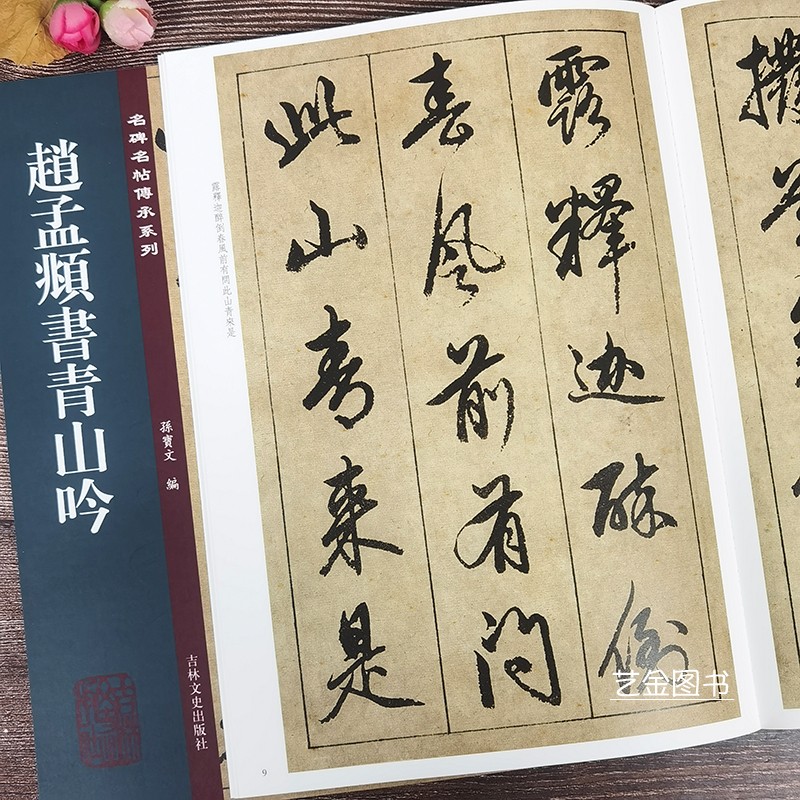 名碑名帖傳承系列
趙孟頫書青山吟
孫寶文 編
吉林文史出版社
露釋迦醉倒春風前有問此山青來是
露釋迦醉倒
春風前有問
此山青來是
9
艺金图书